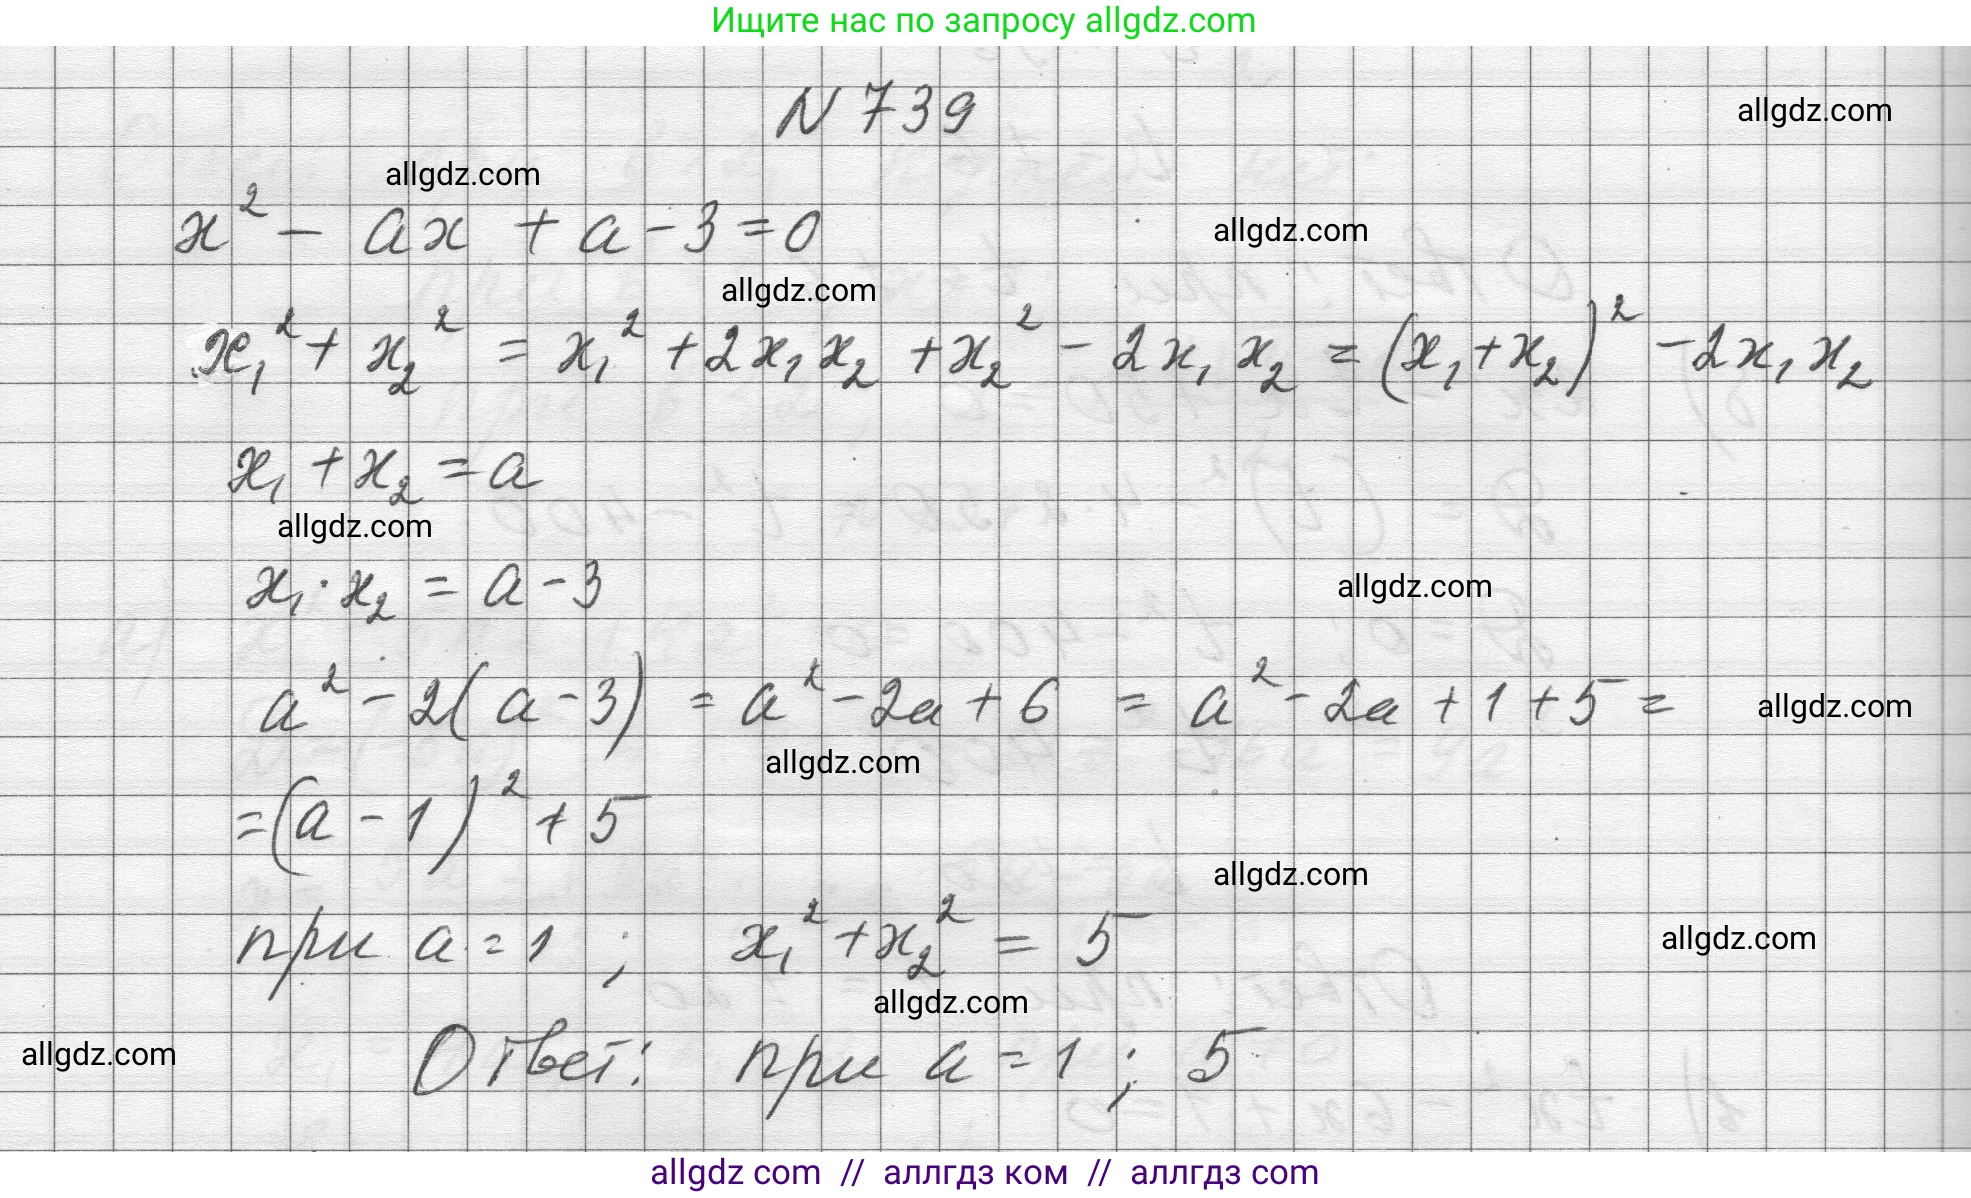 Ищите нас по запросу allgdz.com
N 739
allgdz.com
allgdz.com
x² - ax + a - 3 = 0
allgdz.com
allgdz.com
x₁² + x₂² = x₁² + 2x₁x₂ + x₂² - 2x₁x₂ = (x₁ + x₂)² - 2x₁x₂
x₁ + x₂ = a
allgdz.com
x₁ · x₂ = a - 3
allgdz.com
a² - 2(a - 3) = a² - 2a + 6 = a² - 2a + 1 + 5 =
allgdz.com
allgdz.com
= (a - 1)² + 5
allgdz.com
при a = 1 ; x₁² + x₂² = 5
allgdz.com
allgdz.com
Ответ: при a = 1 ; 5
allgdz.com
allgdz com // аллгдз ком // аллгдз com